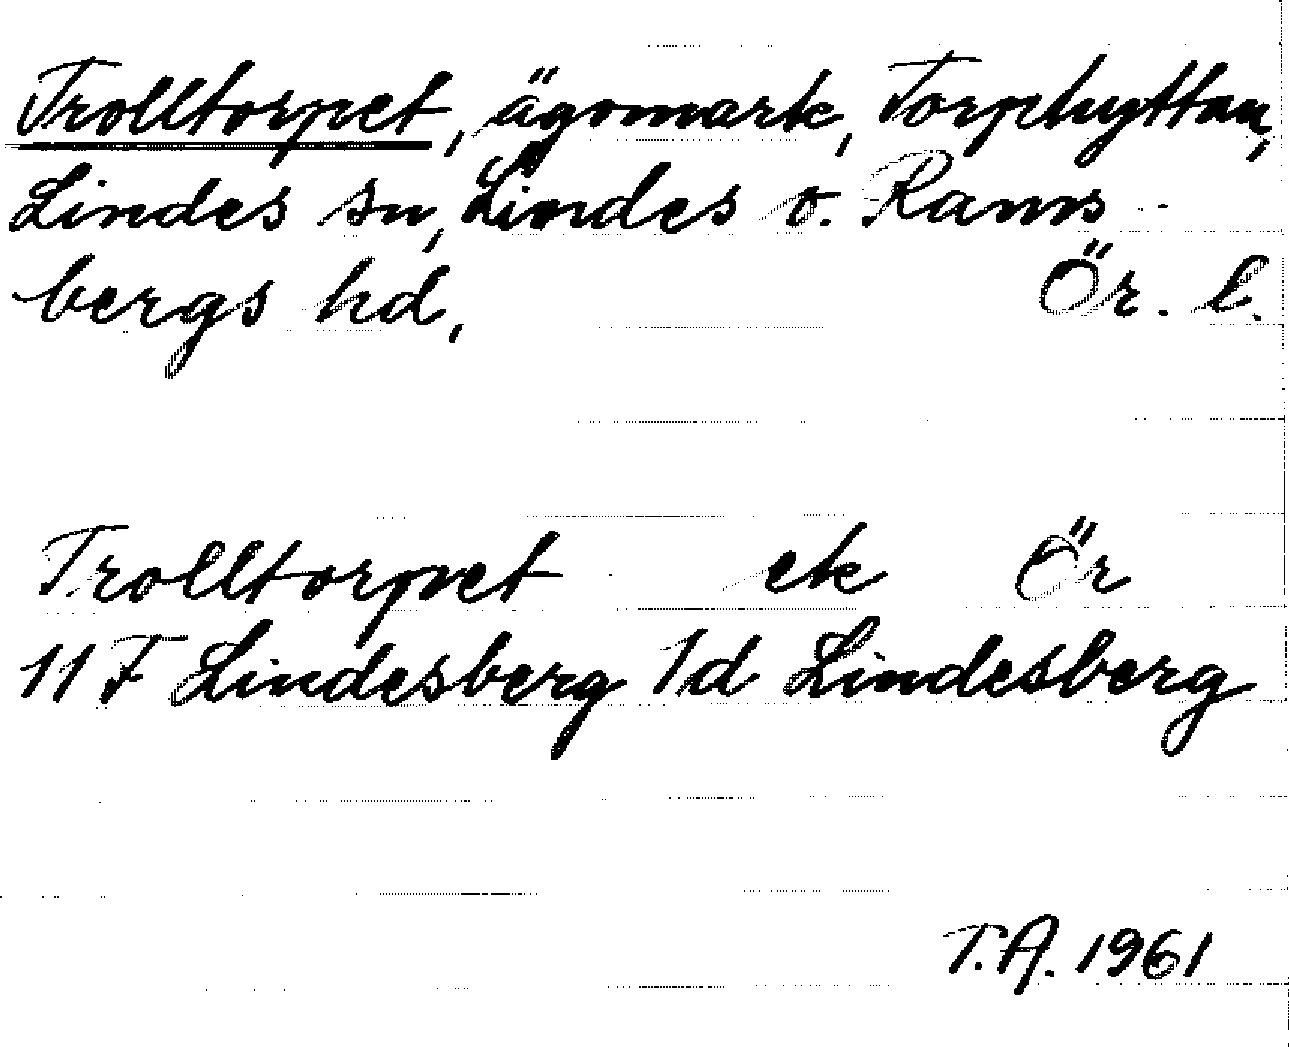 Trolltorpet, ägomark, Torphyttan,
Lindes sn, Lindes o. Rams-
bergs hd, Ör. l.
Trolltorpet ek Ör
11 F Lindesberg 1d Lindesberg
T.A. 1961